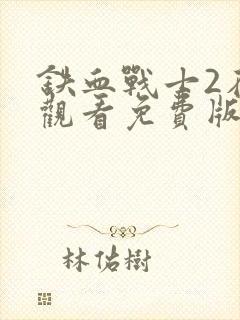 鉄血戰士2
觀看免費版
林佑樹